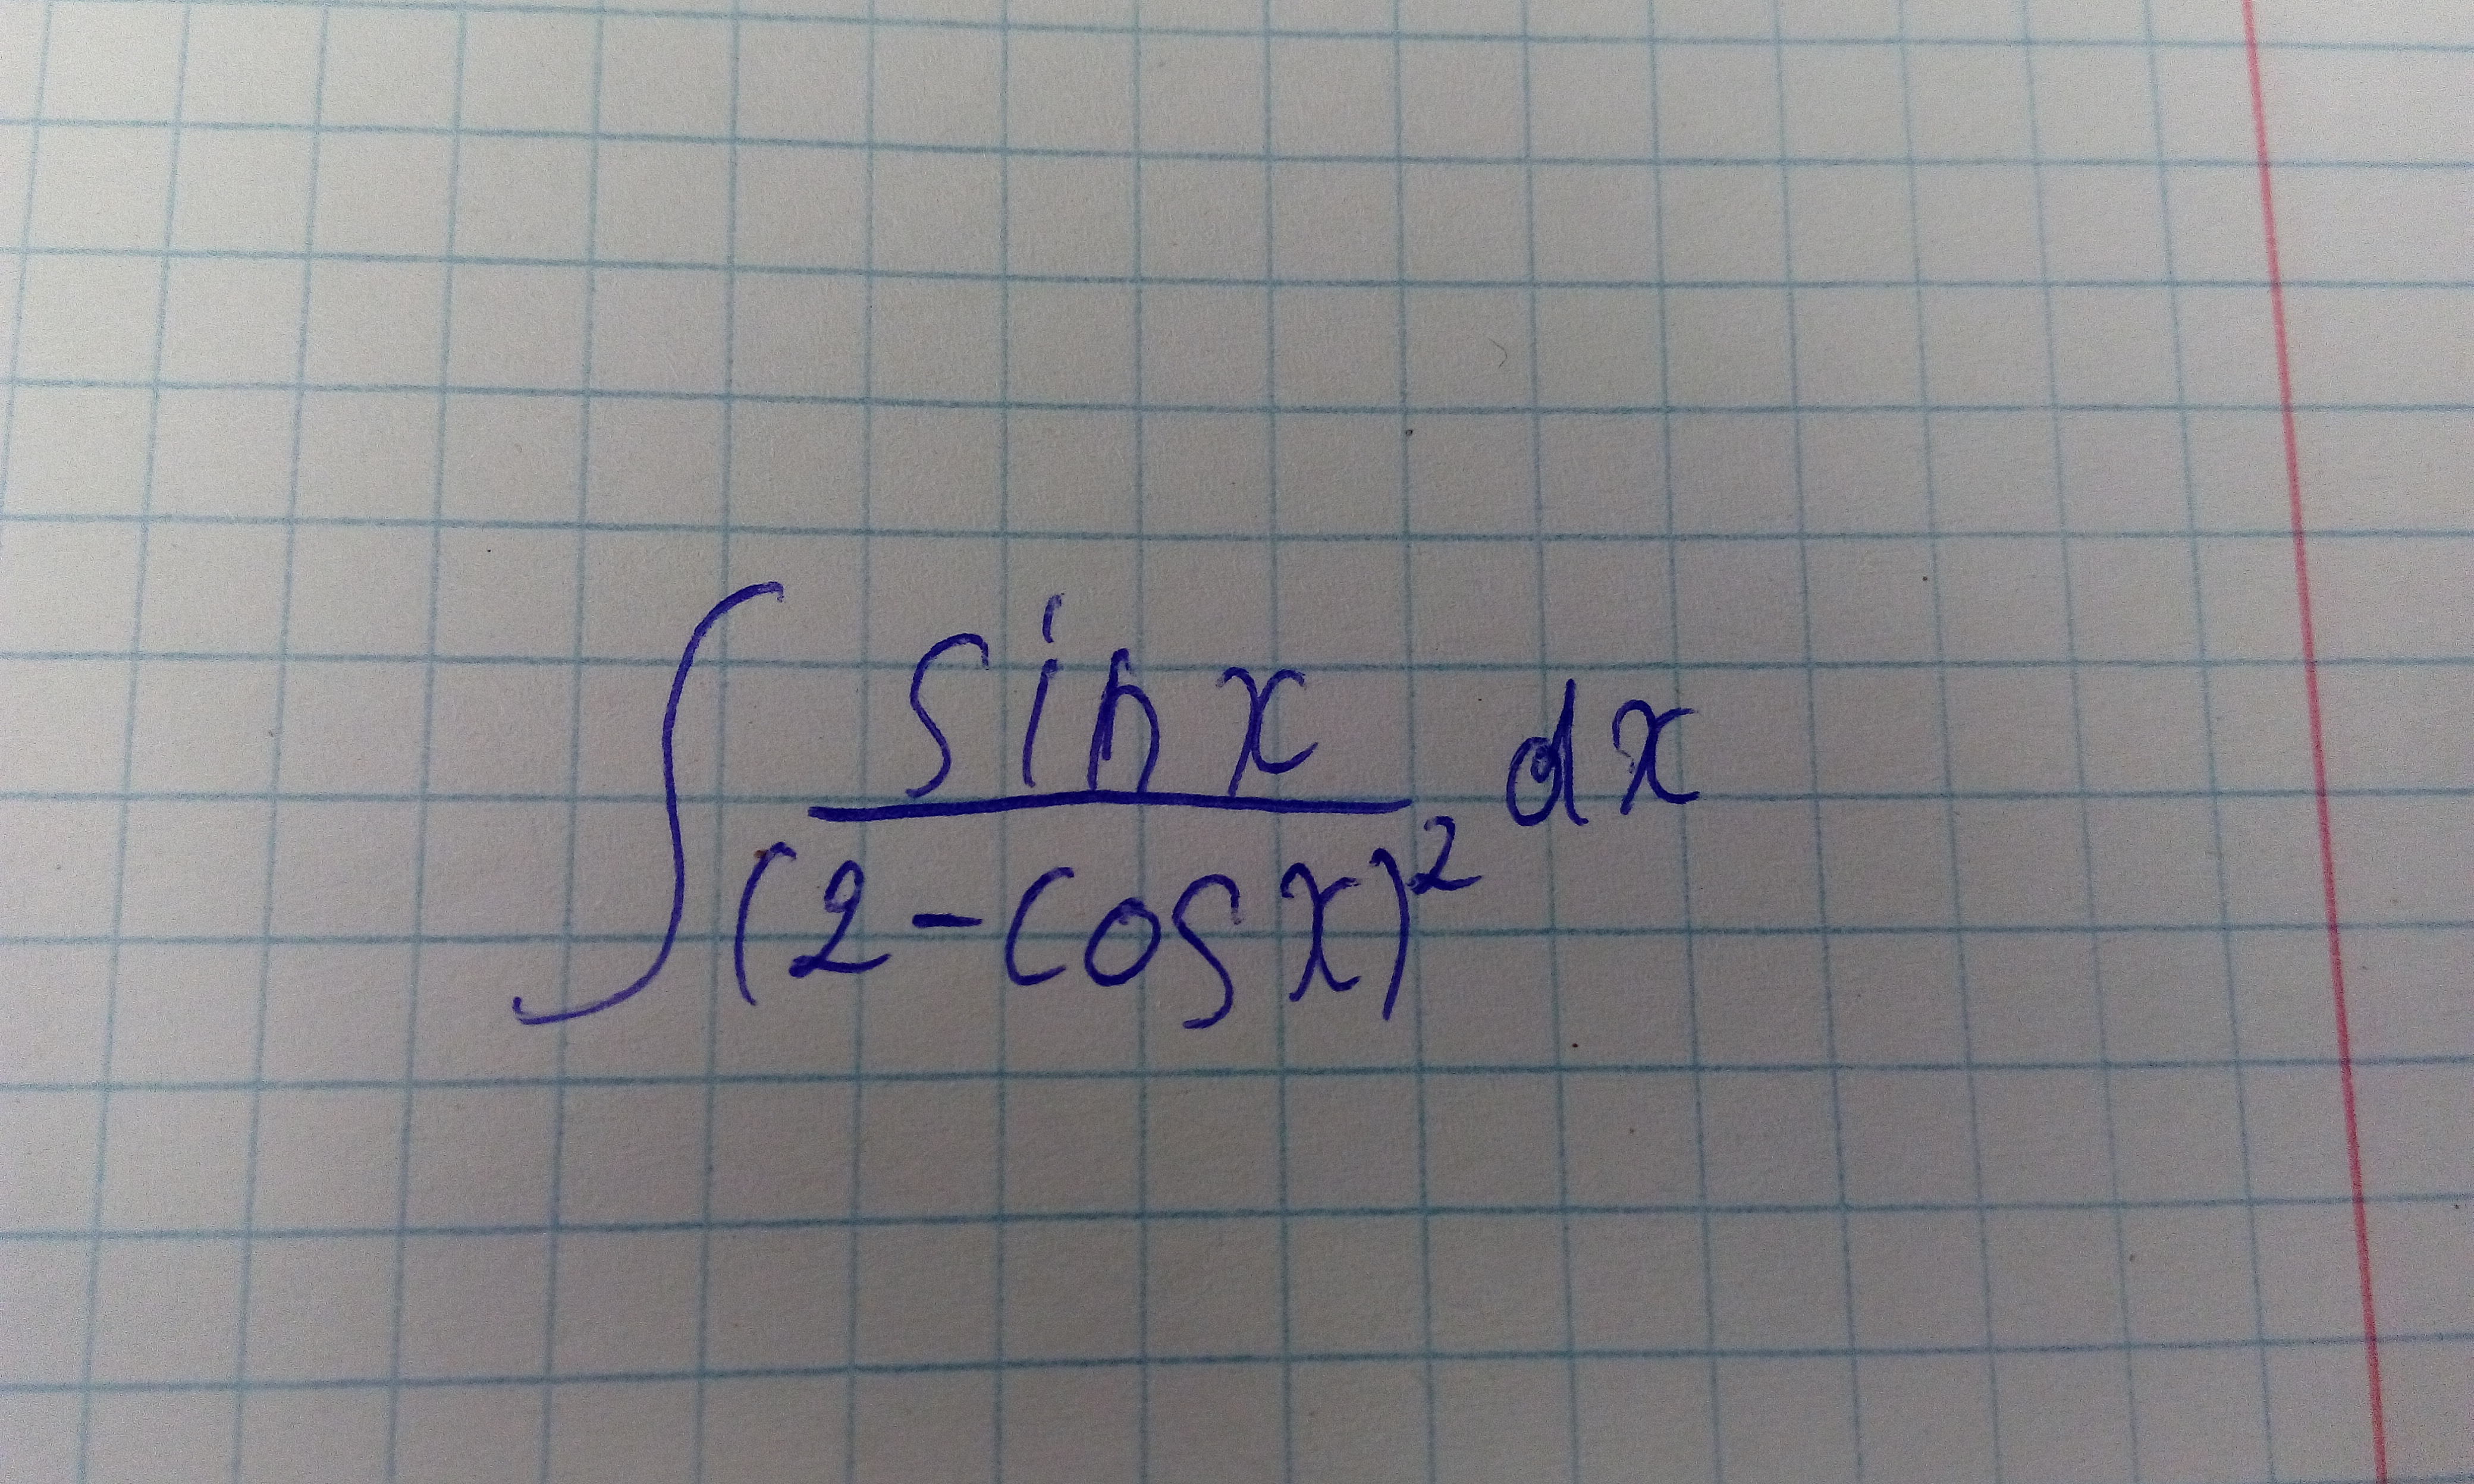 ∫ sin x / (2 - cos x)² dx